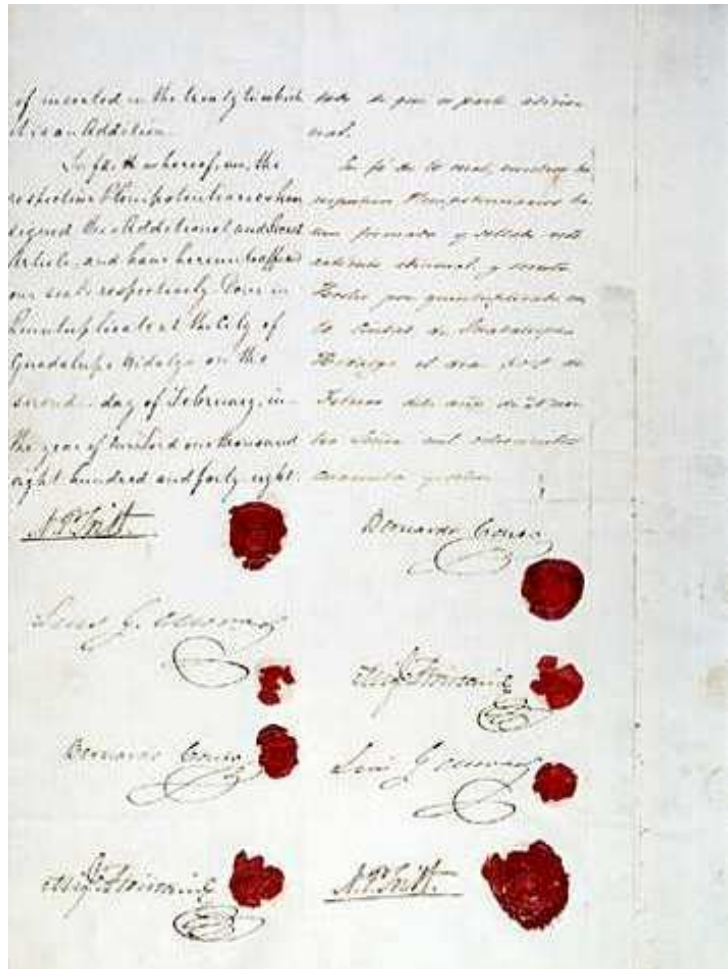 of inserted in the treaty to which
it is an Addition.
In faith whereof, we, the
respective Plenipotentiaries have
signed this Additional and Secret
Article, and have hereunto affixed
our seals respectively. Done in
Quintuplicate at the City of
Guadalupe Hidalgo on the
second day of February, in
the year of our Lord one thousand
eight hundred and forty eight.
de que es parte adicio
nal.
En fé de lo cual, nosotros los
respectivos Plenipotenciarios he
mos firmado y sellado este
articulo adicional, y secreto
Hecho por quintuplicado en
la Ciudad de Guadalupe
Hidalgo el dia dos de
Febrero del año de
mil ochocientos
cuarenta y ocho.
N. P. Trist.
Bernardo Couto
Luis G. Cuevas
Mig. Atristain
Bernardo Couto
Luis G. Cuevas
Mig. Atristain
N. P. Trist.